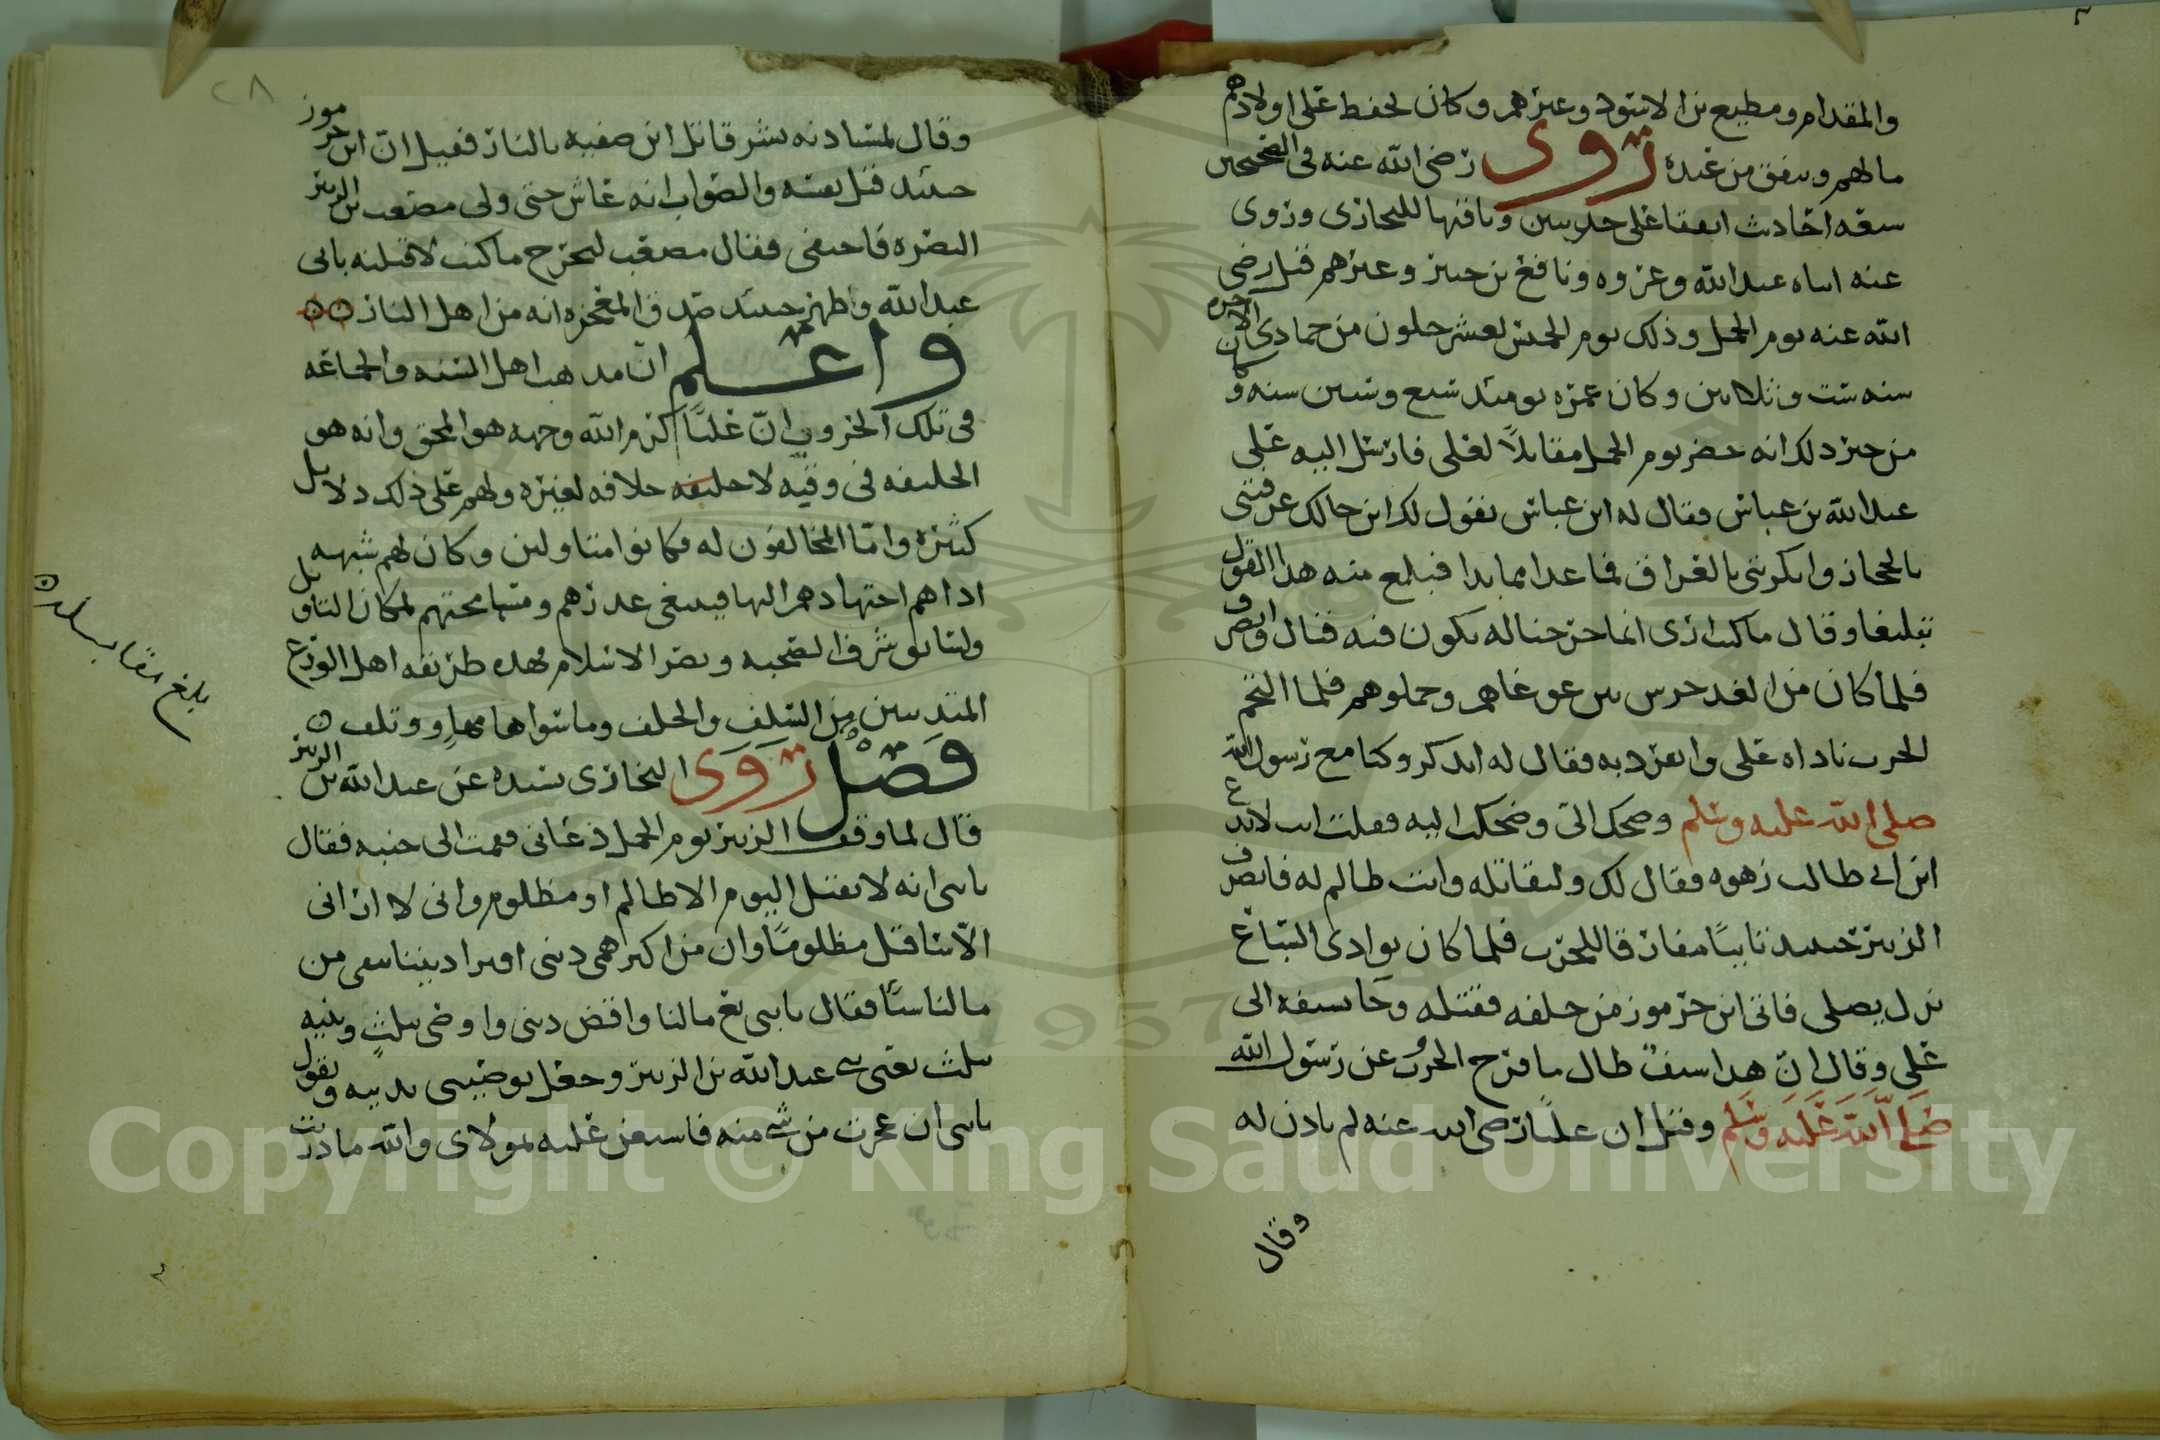 والمقدام ومطيع بن الاسود وغيرهم وكان يحفظ على اولادهم
مالهم وينفق من عنده روى رضي الله عنه في الصحيحين
سبعه احاديث اتفقا على حديثين وباقيها للبخاري وروى
عنه ابناه عبد الله وعروه ونافع بن جبير وغيرهم قتل رضي
الله عنه يوم الجمل وذلك يوم الخميس لعشر خلون من جمادى الاخره
سنه ست وثلاثين وكان عمره يومئذ سبع وستين سنه وكان
من خبر ذلك انه حضر يوم الجمل مقاتلا لعلي فارسل اليه علي
عبد الله بن عباس فقال له ابن عباس يقول لك ابن خالك عرفتني
بالحجاز وانكرتني بالعراق فما عدا مما بدا فبلغ منه هذا القول
تبليغا وقال ما كنت ارى انما خرجنا له يكون فيه قتال وانصرف
فلما كان من الغد حرس بين عوغاهم وحملوهم فلما التحم
الحرب ناداه علي وانفرد به فقال له اتذكر وكنا مع رسول الله
صلى الله عليه وسلم وضحك الي وضحكت اليه فقلت انت لا يدع
ابن ابي طالب زهوه فقال لك ولتقاتله وانت ظالم له فانصرف
الزبير حينئذ تائبا مفارقا للحرب فلما كان بوادي السباع
نزل يصلي فاتى ابن جرموز من خلفه فقتله وجا بسيفه الى
علي وقال ان هذا سيف طال ما فرج الحرب عن رسول الله
صلى الله عليه وسلم وقيل ان عليا رضي الله عنه لم ياذن له
وقال
٢٨
وقال لمستاذنه بشر قاتل ابن صفيه بالنار فقيل ان ابن جرموز
حينئذ قتل نفسه والصواب انه عاش حتى ولي مصعب بن الزبير
البصره فاختفى فقال مصعب ليخرج ما كنت لاقتله بابي
عبد الله واظهر حينئذ صدق المعجزه انه من اهل النار
واعلم ان مذهب اهل السنه والجماعه
في تلك الحروب ان عليا كرم الله وجهه هو المحق وانه هو
الخليفه في وقته لا خليفه خلافه لغيره ولهم على ذلك دلايل
كثيره واما المخالفون له فكانوا متاولين وكان لهم شبهه
اداهم اجتهادهم اليها فينبغي عذرهم ومسامحتهم لمكان التاويل
ولسابق شرف الصحبه ونصر الاسلام فهذه طريقه اهل الورع
المتدينين من السلف والخلف وما سواها مهاو وتلف
فصل روى البخاري بسنده عن عبد الله بن الزبير
قال لما وقف الزبير يوم الجمل دعاني فقمت الى جنبه فقال
يابني انه لا يقتل اليوم الا ظالم او مظلوم واني لا اراني
الا ساقتل مظلوما وان من اكبر همي ديني افترى ديننا يبقي من
مالنا شيئا فقال يابني بع مالنا واقض ديني واوصى بثلث وبنيه
بثلث يعني بني عبد الله بن الزبير وجعل يوصيني بدينه ويقول
يابني ان عجزت من شي منه فاستعن عليه بمولاي والله ما دريت
بلغ مقابله
Copyright © King Saud University
1957